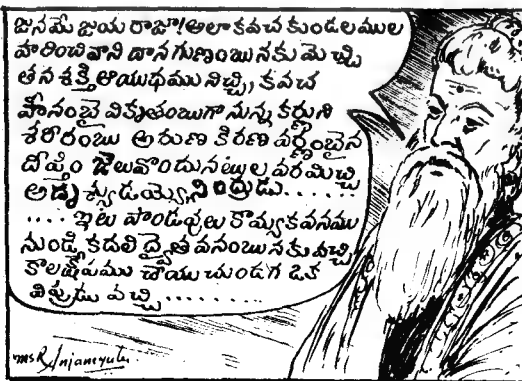 జనమేజయ రాజా! అలా కవచ కుండలముల
హరించి వాని దాన గుణంబునకు మెచ్చి
తన శక్తి ఆయుధము నిచ్చి, కవచ
హీనంబై వికృతంబుగా నున్న కర్ణుని
శరీరంబు అరుణ కిరణ వర్ణంబైన
దీప్తిం జెలువొందునట్లుల వరమిచ్చి
అదృశ్యుడయ్యె నింద్రుడు......
.... ఇటు పాండవులు కామ్యకవనము
నుండి కదలి ద్వైత వనంబునకు వచ్చి
కాలక్షేపము చేయు చుండగ ఒక
విప్రుడు వచ్చి.........
msRAnjaneyulu